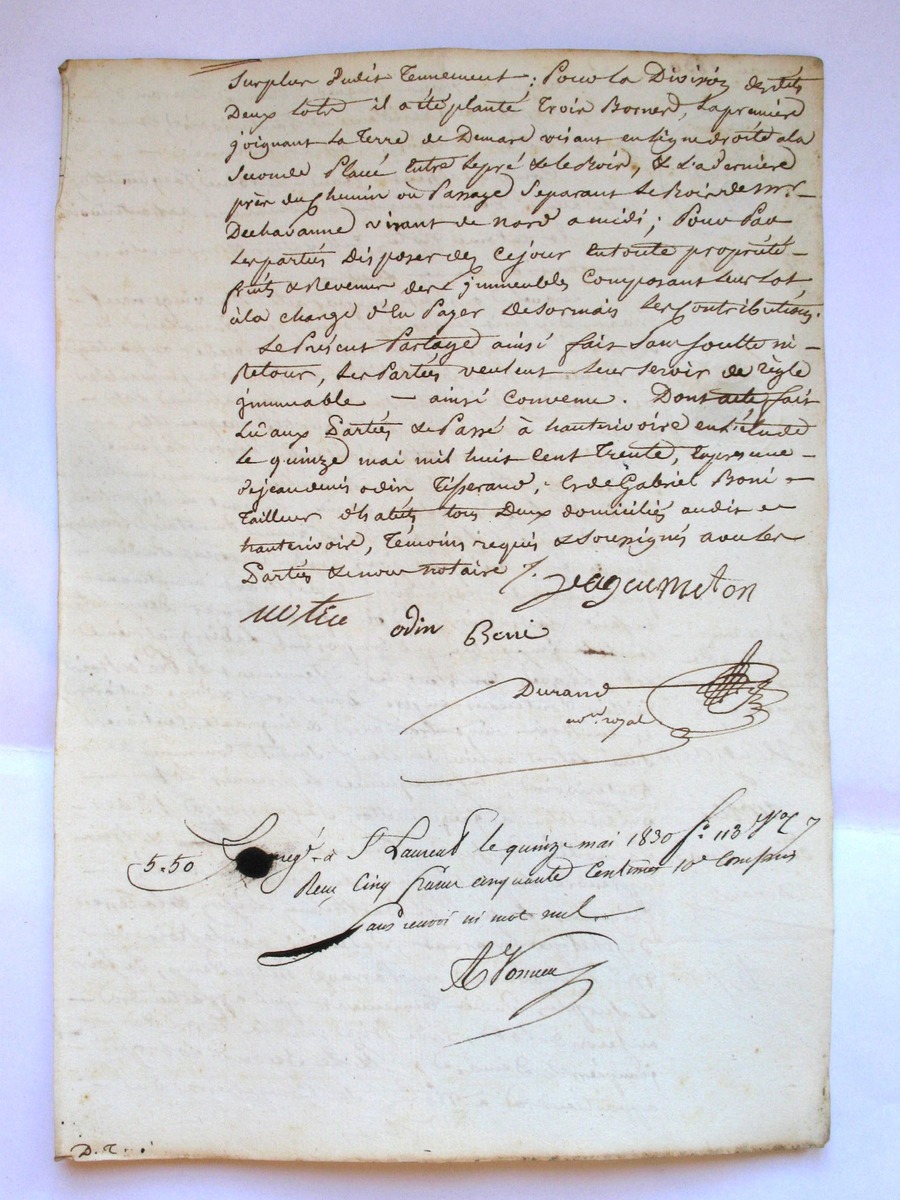 Surplus dudit Tennement; Pour la Division desdits
Deux lots il a été planté Trois Bornes, la première
joignant la Terre de Demare visant en ligne droite a la
Seconde Placé Entre le pré & le Bois, & La Dernière
près du Chemin ou Passage Separant Le Bois de mr
Dechavanne visant de nord a midi; Pour Par
Les parties disposer des Cejour En toute propriété
fruits & Revenus des jmmeubles Composant Leur Lot,
à la charge d'En Payer desormais Les Contributions.
Le Présent Partage ainsi fait Sans Soulte ni
Retour, Les Parties veulent Leur servir de règle
jmmuable — ainsi Convenu. Dont acte fait
Lû aux Parties & Passé à hauterivoire En L'étude
Le quinze mai mil huit Cent Trente, En présence
de jean denis odin Tisserand, & de Gabriel Boni
Tailleur d'habits tous Deux domiciliés audit
hauterivoire, Témoins requis & Soussignés avec Les
Parties & nous notaire
odin
Durand
nore. royal
5.50
Enregé. à St Laurent le quinze mai 1830 fo. 113
Reçu Cinq francs cinquante Centimes 10e Compris
Sans renvoi ni mot nul